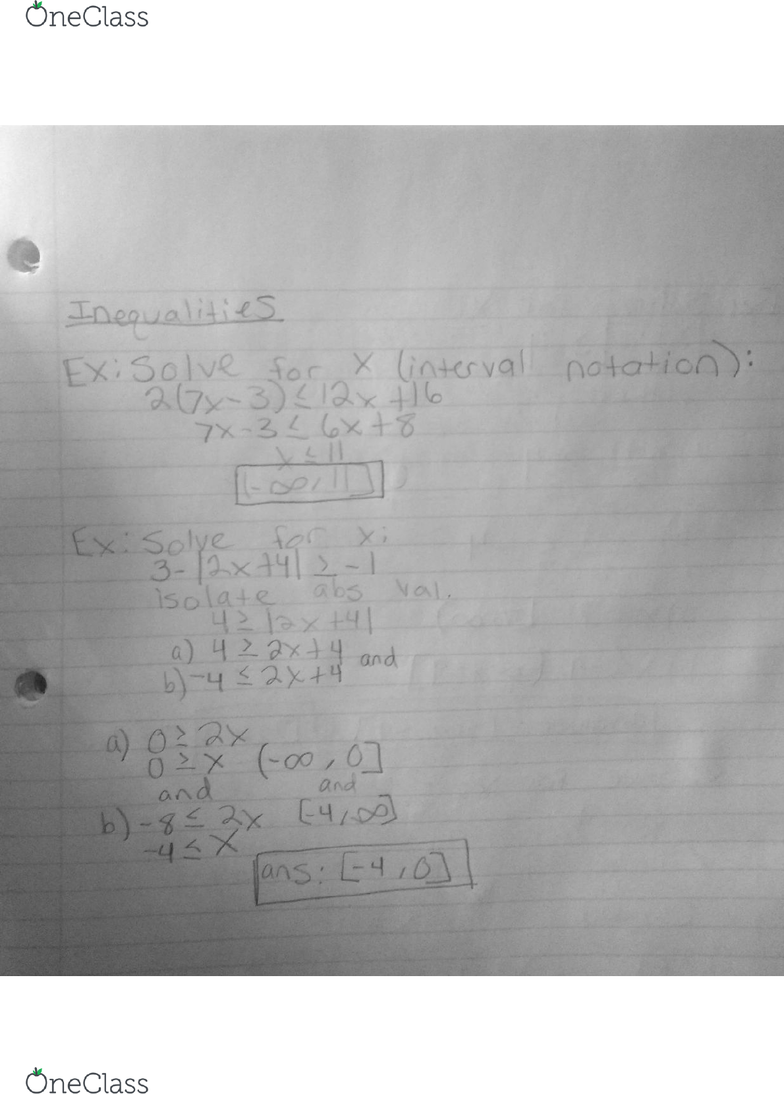 OneClass
Inequalities
Ex: Solve for x (interval notation):
2(7x-3) ≤ 12x +16
7x-3 ≤ 6x+8
x ≤ 11
(-∞, 11]
Ex: Solve for x:
3-|2x+4| ≥ -1
isolate abs val.
4 ≥ |2x+4|
a) 4 ≥ 2x+4 and
b) -4 ≤ 2x+4
a) 0 ≥ 2x
0 ≥ x (-∞, 0]
and and
b) -8 ≤ 2x [-4, ∞]
-4 ≤ x
ans: [-4, 0]
OneClass